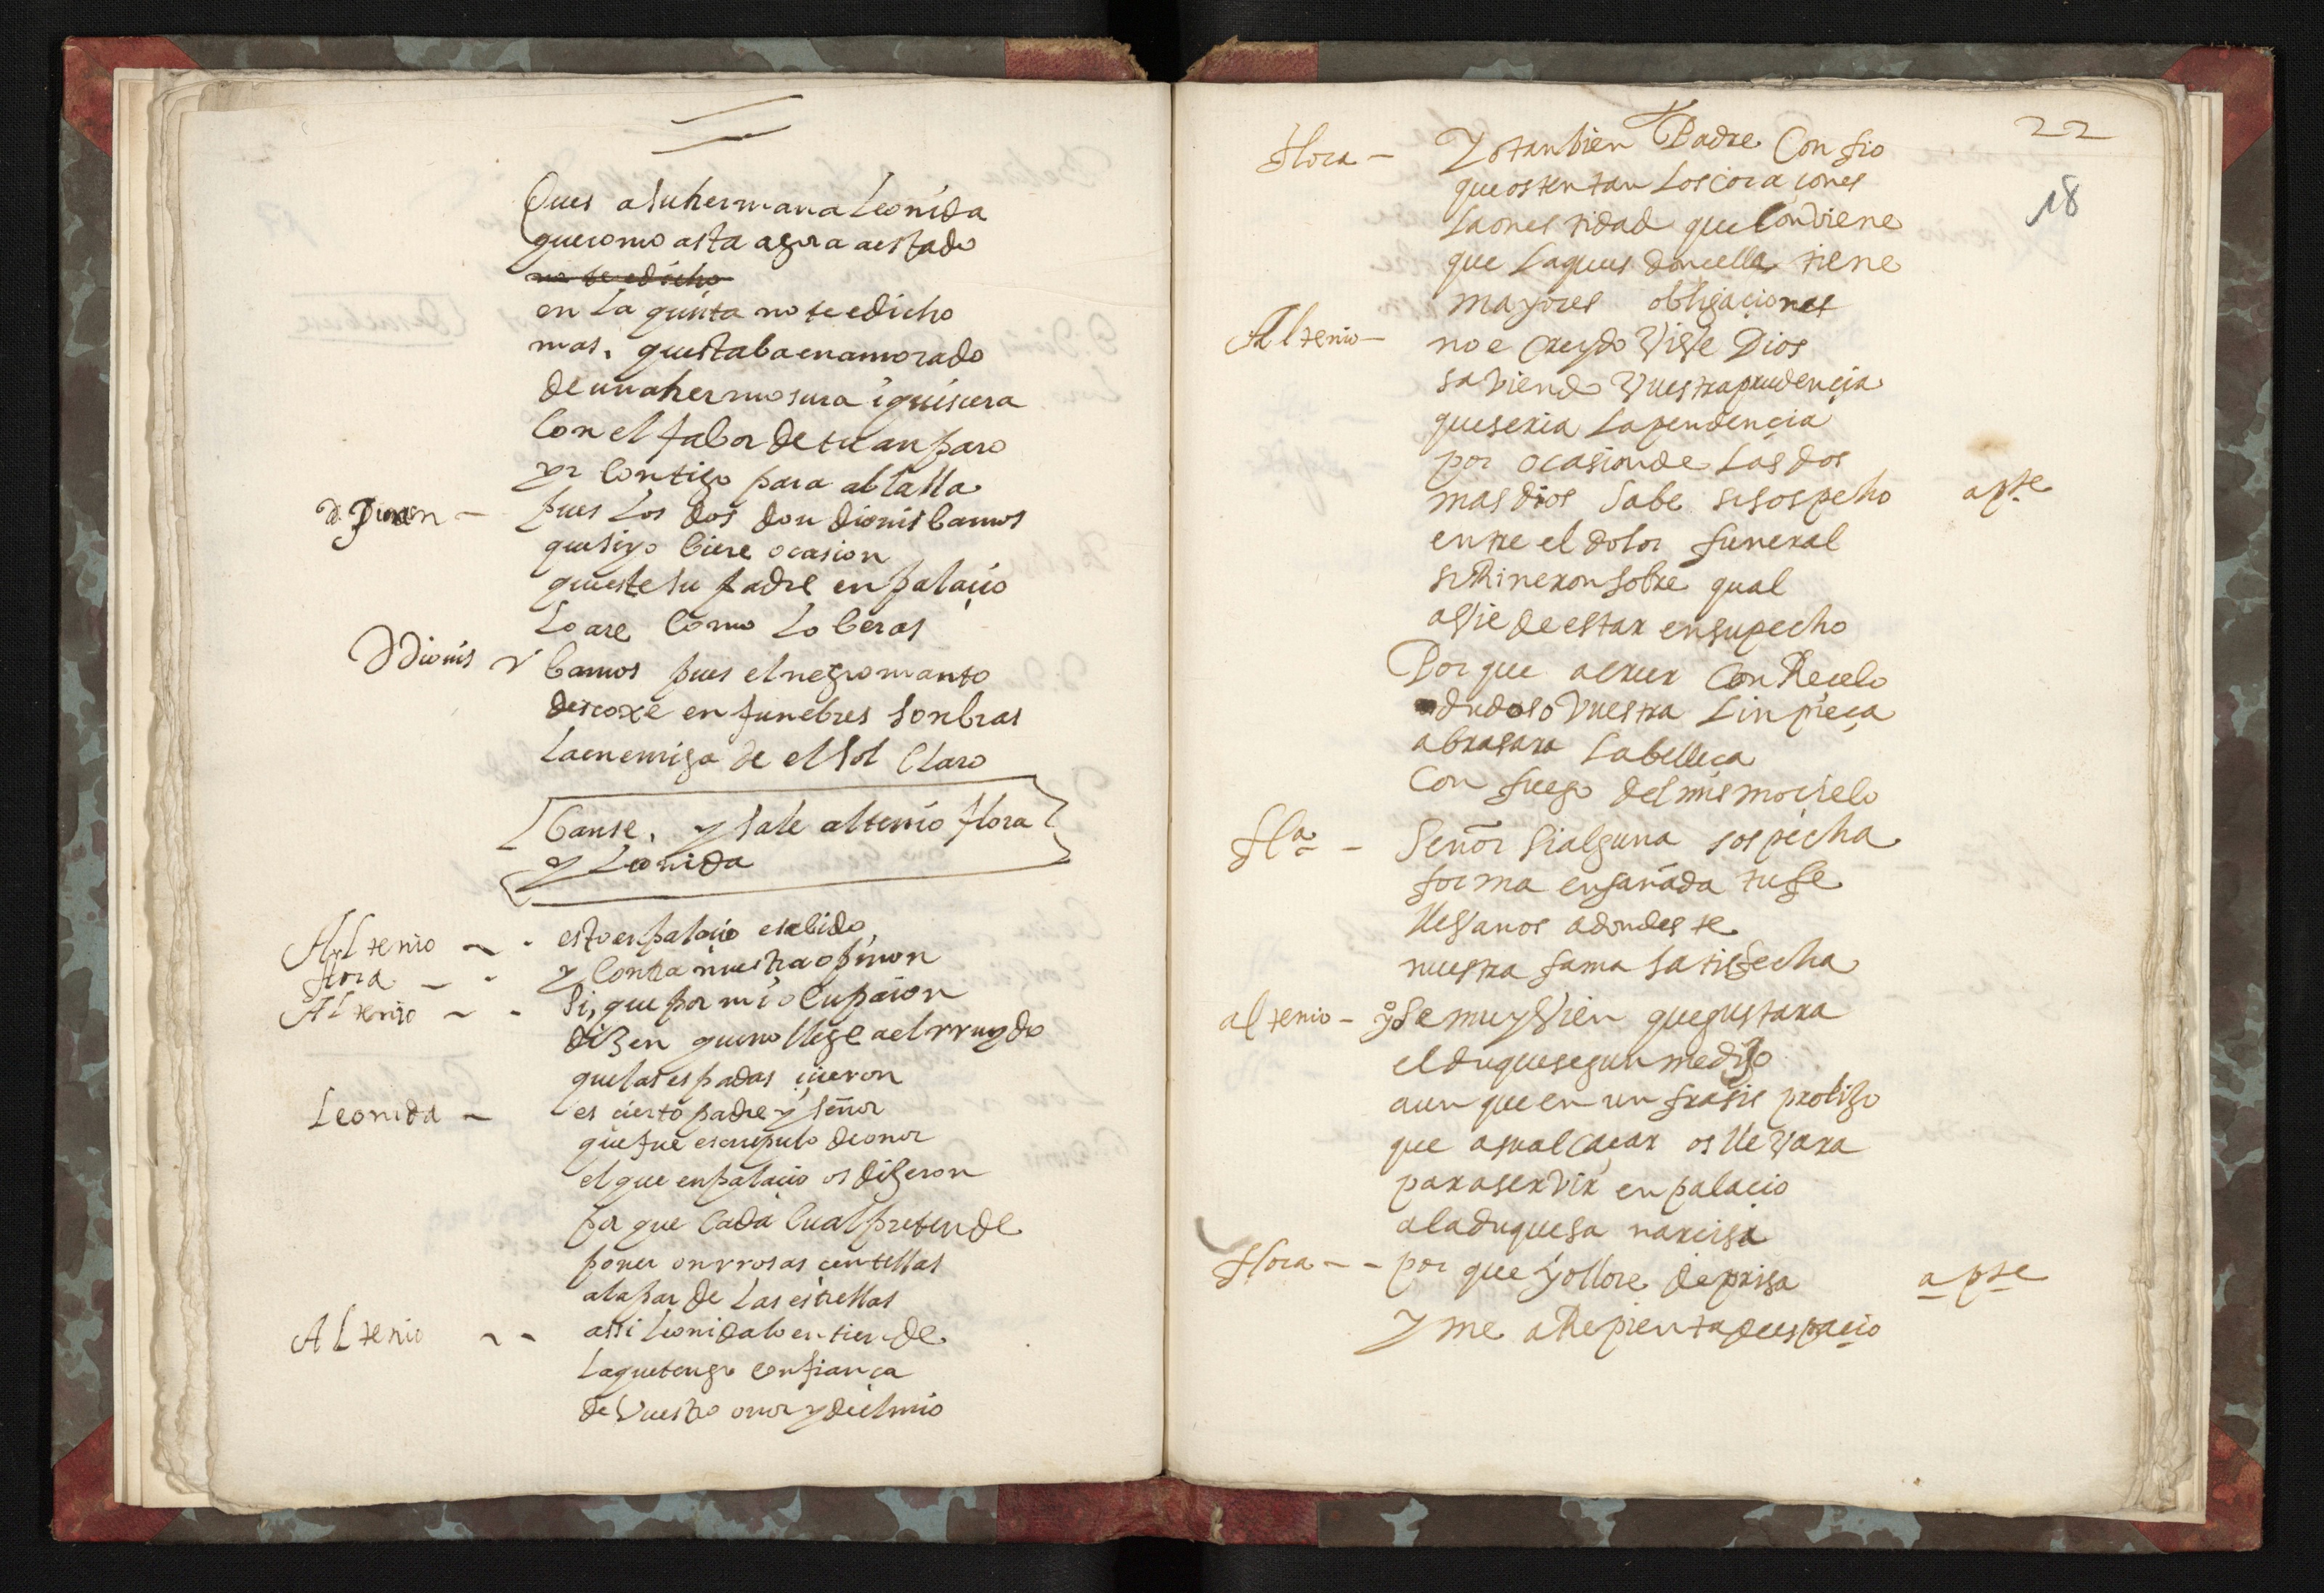 Ques a su hermana Leonida
que como asta agora a estado
no te edicho
en La quinta no te edicho
mas. questaba enamorado
de una hermosura i quisiera
Con el fabor de tu anparo
yr Contigo para ablalla
D. Ximen – pues Los dos don dionis bamos
que si yo biere ocasion
queste su padre en palaçio
Lo are Como Lo beras
D Dionis bamos pues el negro manto
descoxe en funebres sonbras
La enemiga de el Sol Claro
banse. y sale altenio flora
y Leonida
Altenio – - esto en palaçio e sabido
flora – - y Contra nuestra opinion
Altenio – - Si, que por mi ocupaçion
diZen que no llege a el rruydo
que las espadas içieron
Leonida – es çierto padre y señor
que fue escrupulo de onor
el que en palaçio os diZeron
por que Cada Cual pretende
poner onrrosas çentellas
a la par de Las estrellas
Altenio – - assi Leonida lo entiende
La que tengo confiança
de Vuestro onor y de el mio
22
18
flora – Yo tanbien Padre Confio
que ostentan Los coraçones
La onestidad que Conviene
que La ques doncella tiene
mayores obligaçiones
Altenio – no e Creydo ViVe Dios
saviendo Vuestra prudençia
que seria La pendençia
por ocasion de Las dos
mas dios Sabe si sospecho apte
entre el dolor funeral
si Riñeron Sobre qual
aVie de estar en su pecho
Por que a creer Con Reçelo
dudoso Vuestra Linpieça
abrasara La belleça
Con fuego del mismo çielo
fla – Señor Si alguna sospecha
forma engañada tu fe
lleVanos adonde este
nuestra fama Satisfecha
altenio – yo Se muy Vien que gustara
el duque segun me diZo
aun que en un frasis proliZo
que a su alcaçar os lleVara
para serVir en palaçio
a la duquesa narcisa
flora – - por que yo llore de prisa apte
Y me aRepienta de espaçio